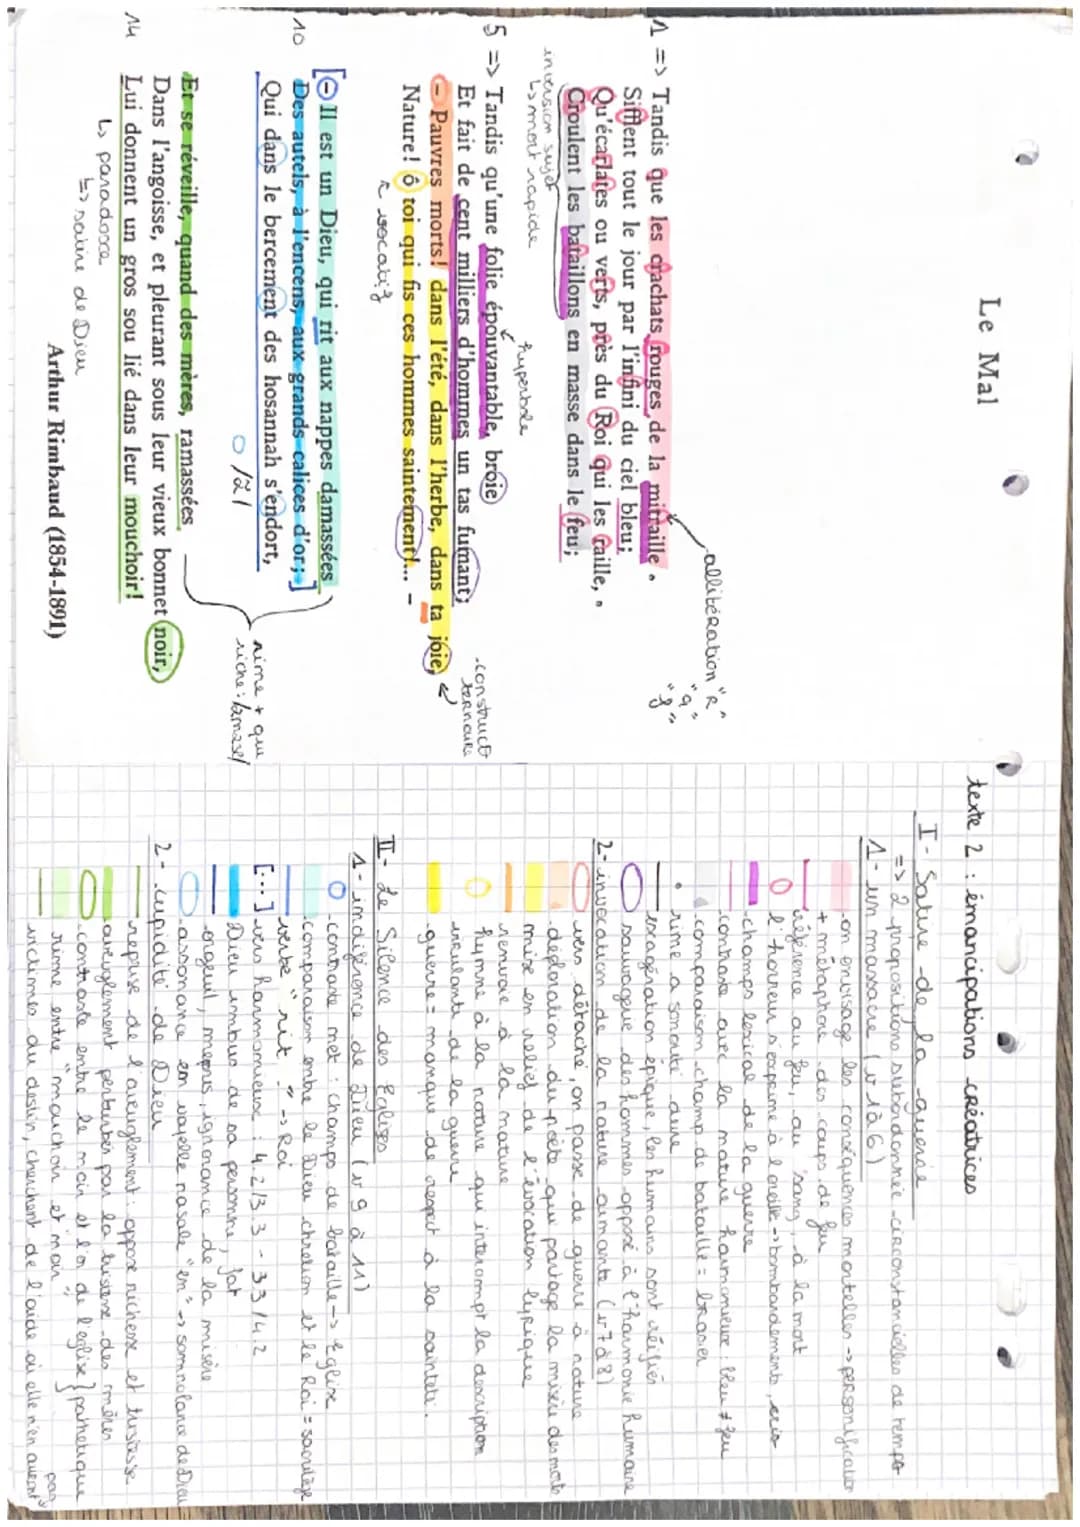 Le Mal
1 => Tandis que les crachats rouges de la mitraille
Sifflent tout le jour par l'infini du ciel bleu;
Qu'écarlates ou verts, près du Roi qui les raille,
Croulent les bataillons en masse dans le feu;
inversion sujet
↳ mort rapide
allitération "R"
"q"
"f"
5 => Tandis qu'une folie épouvantable, broie
Et fait de cent milliers d'hommes un tas fumant;
- Pauvres morts! dans l'été, dans l'herbe, dans ta joie,
Nature! ô toi qui fis ces hommes saintement!... -
hyperbole
vocatif
- construct°
ternaire
[- Il est un Dieu, qui rit aux nappes damassées
10 Des autels, à l'encens, aux grands calices d'or;]
Qui dans le bercement des hosannah s'endort,
/ã/
rime + que
riche: /amase/
Et se réveille, quand des mères, ramassées
Dans l'angoisse, et pleurant sous leur vieux bonnet noir,
14 Lui donnent un gros sou lié dans leur mouchoir!
↳ paradoxe
↳ satire de Dieu
Arthur Rimbaud (1854-1891)
texte 2 : émancipations créatrices
I- Satire de la guerre
=> 2 propositions subordonnée circonstancielles de temps
1- un massacre (v 1 à 6)
- on envisage les conséquences mortelles -> personification
+ métaphore des coups de feu
référence au feu, au sang, à la mort
l'horreur s'exprime à l'oreille -> bombardements, cris
champs lexical de la guerre
contraste avec la nature harmonieuse bleu ≠ feu
comparaison champ de bataille = brasier
rime a sonorité dure
exagération épique, les humains sont réifiés
sauvagerie des hommes opposé à l'harmonie humaine
2- invocation de la nature aimante (v 7 à 8)
vers détaché, on passe de guerre à nature
déploration du poète qui partage la misère des morts
mise en relief de l'évocation lyrique
renvoie à la nature
hymne à la nature qui interompt la description
reculante de la guerre
guerre = manque de respect à la sainteté.
II- Le Silence des Eglises
1- indiférence de Dieu (v 9 à 11)
- contraste net : champs de bataille -> Eglise
comparaison entre le Dieu chrétien et le Roi = sacrilège
verbe "rit" -> Roi
[...] vers harmonieux : 4.2/3.3 - 3 3/4.2
Dieu imbus de sa personne, fat
orgeuil, mepris, ignorance de la misère
- assonance en voyelle nasale "en" -> somnolance de Dieu
2- cupidité de Dieu
reprise de l'aveuglement: oppose richesse et tristesse
aveuglement perturber par la tristesse des mères
contraste entre le noir et l'or de l'eglise } pathétique
rime entre "mouchoir" et "noir"
victimes du destin, cherchent de l'aide où elle n'en auront pas